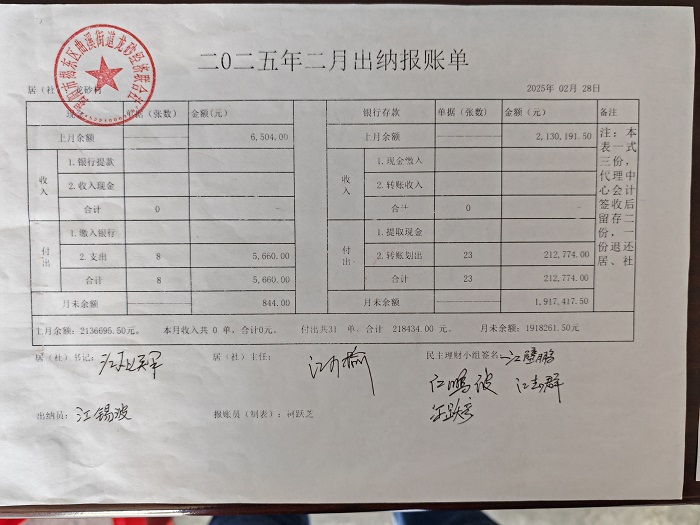 二〇二五年二月出纳报账单
揭阳市揭东区曲溪街道龙砂经济联合社
居（社） 龙砂村 2025年 02月 28日
现金 单据（张数） 金额(元) 银行存款 单据（张数） 金额（元） 备注
上月余额 6,504.00 上月余额 2,130,191.50
收入 1.银行提款 1.现金缴入
2.收入现金 2.转账收入
合计 0 合计 0
付出 1.缴入银行 1.提取现金
2.支出 8 5,660.00 2.转账划出 23 212,774.00
合计 8 5,660.00 合计 23 212,774.00
月末余额 844.00 月末余额 1,917,417.50
注：本表一式三份，代理中心会计签收后留存二份，一份退还居、社
上月余额：2136695.50元。 本月收入共 0 单，合计0元。 付出共31 单，合计 218434.00 元。 月末余额：1918261.50元
居（社）书记： 居（社）主任： 民主理财小组签名：江肇鹏
江鹏波
出纳员：江锡波 报账员（制表）：柯跃芝